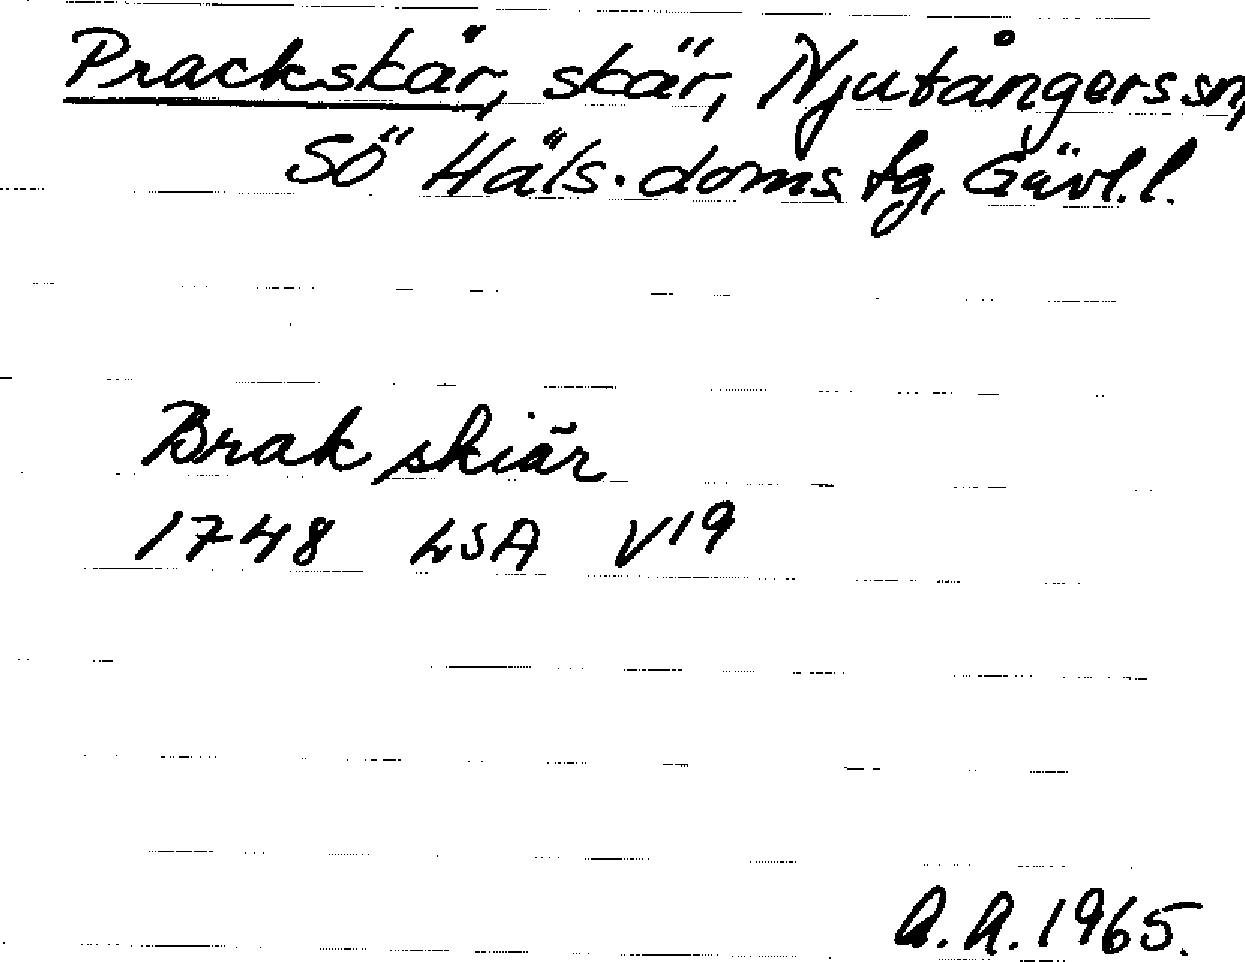 Prackskär, skär, Njutångers sn,
Sö Häls. doms. tg, Gävl. l.
Brak skiär
1748 LSA V19
A. A. 1965.